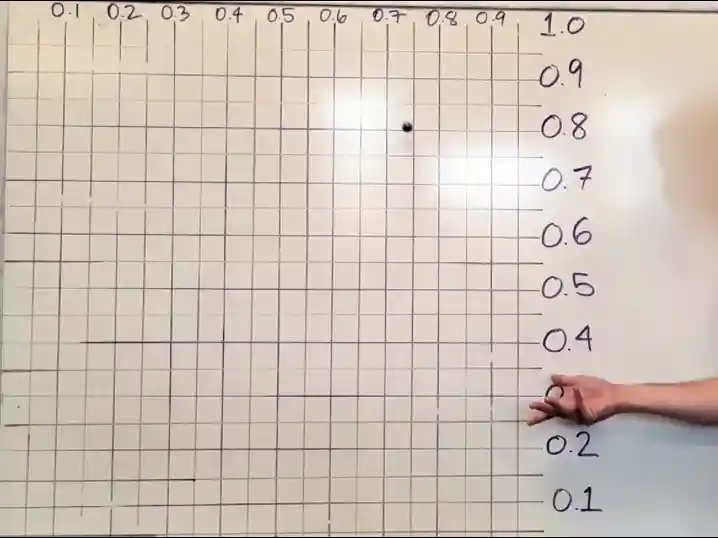 0.1 0.2 0.3 0.4 0.5 0.6 0.7 0.8 0.9 1.0
0.9
0.8
0.7
0.6
0.5
0.4
0.2
0.1